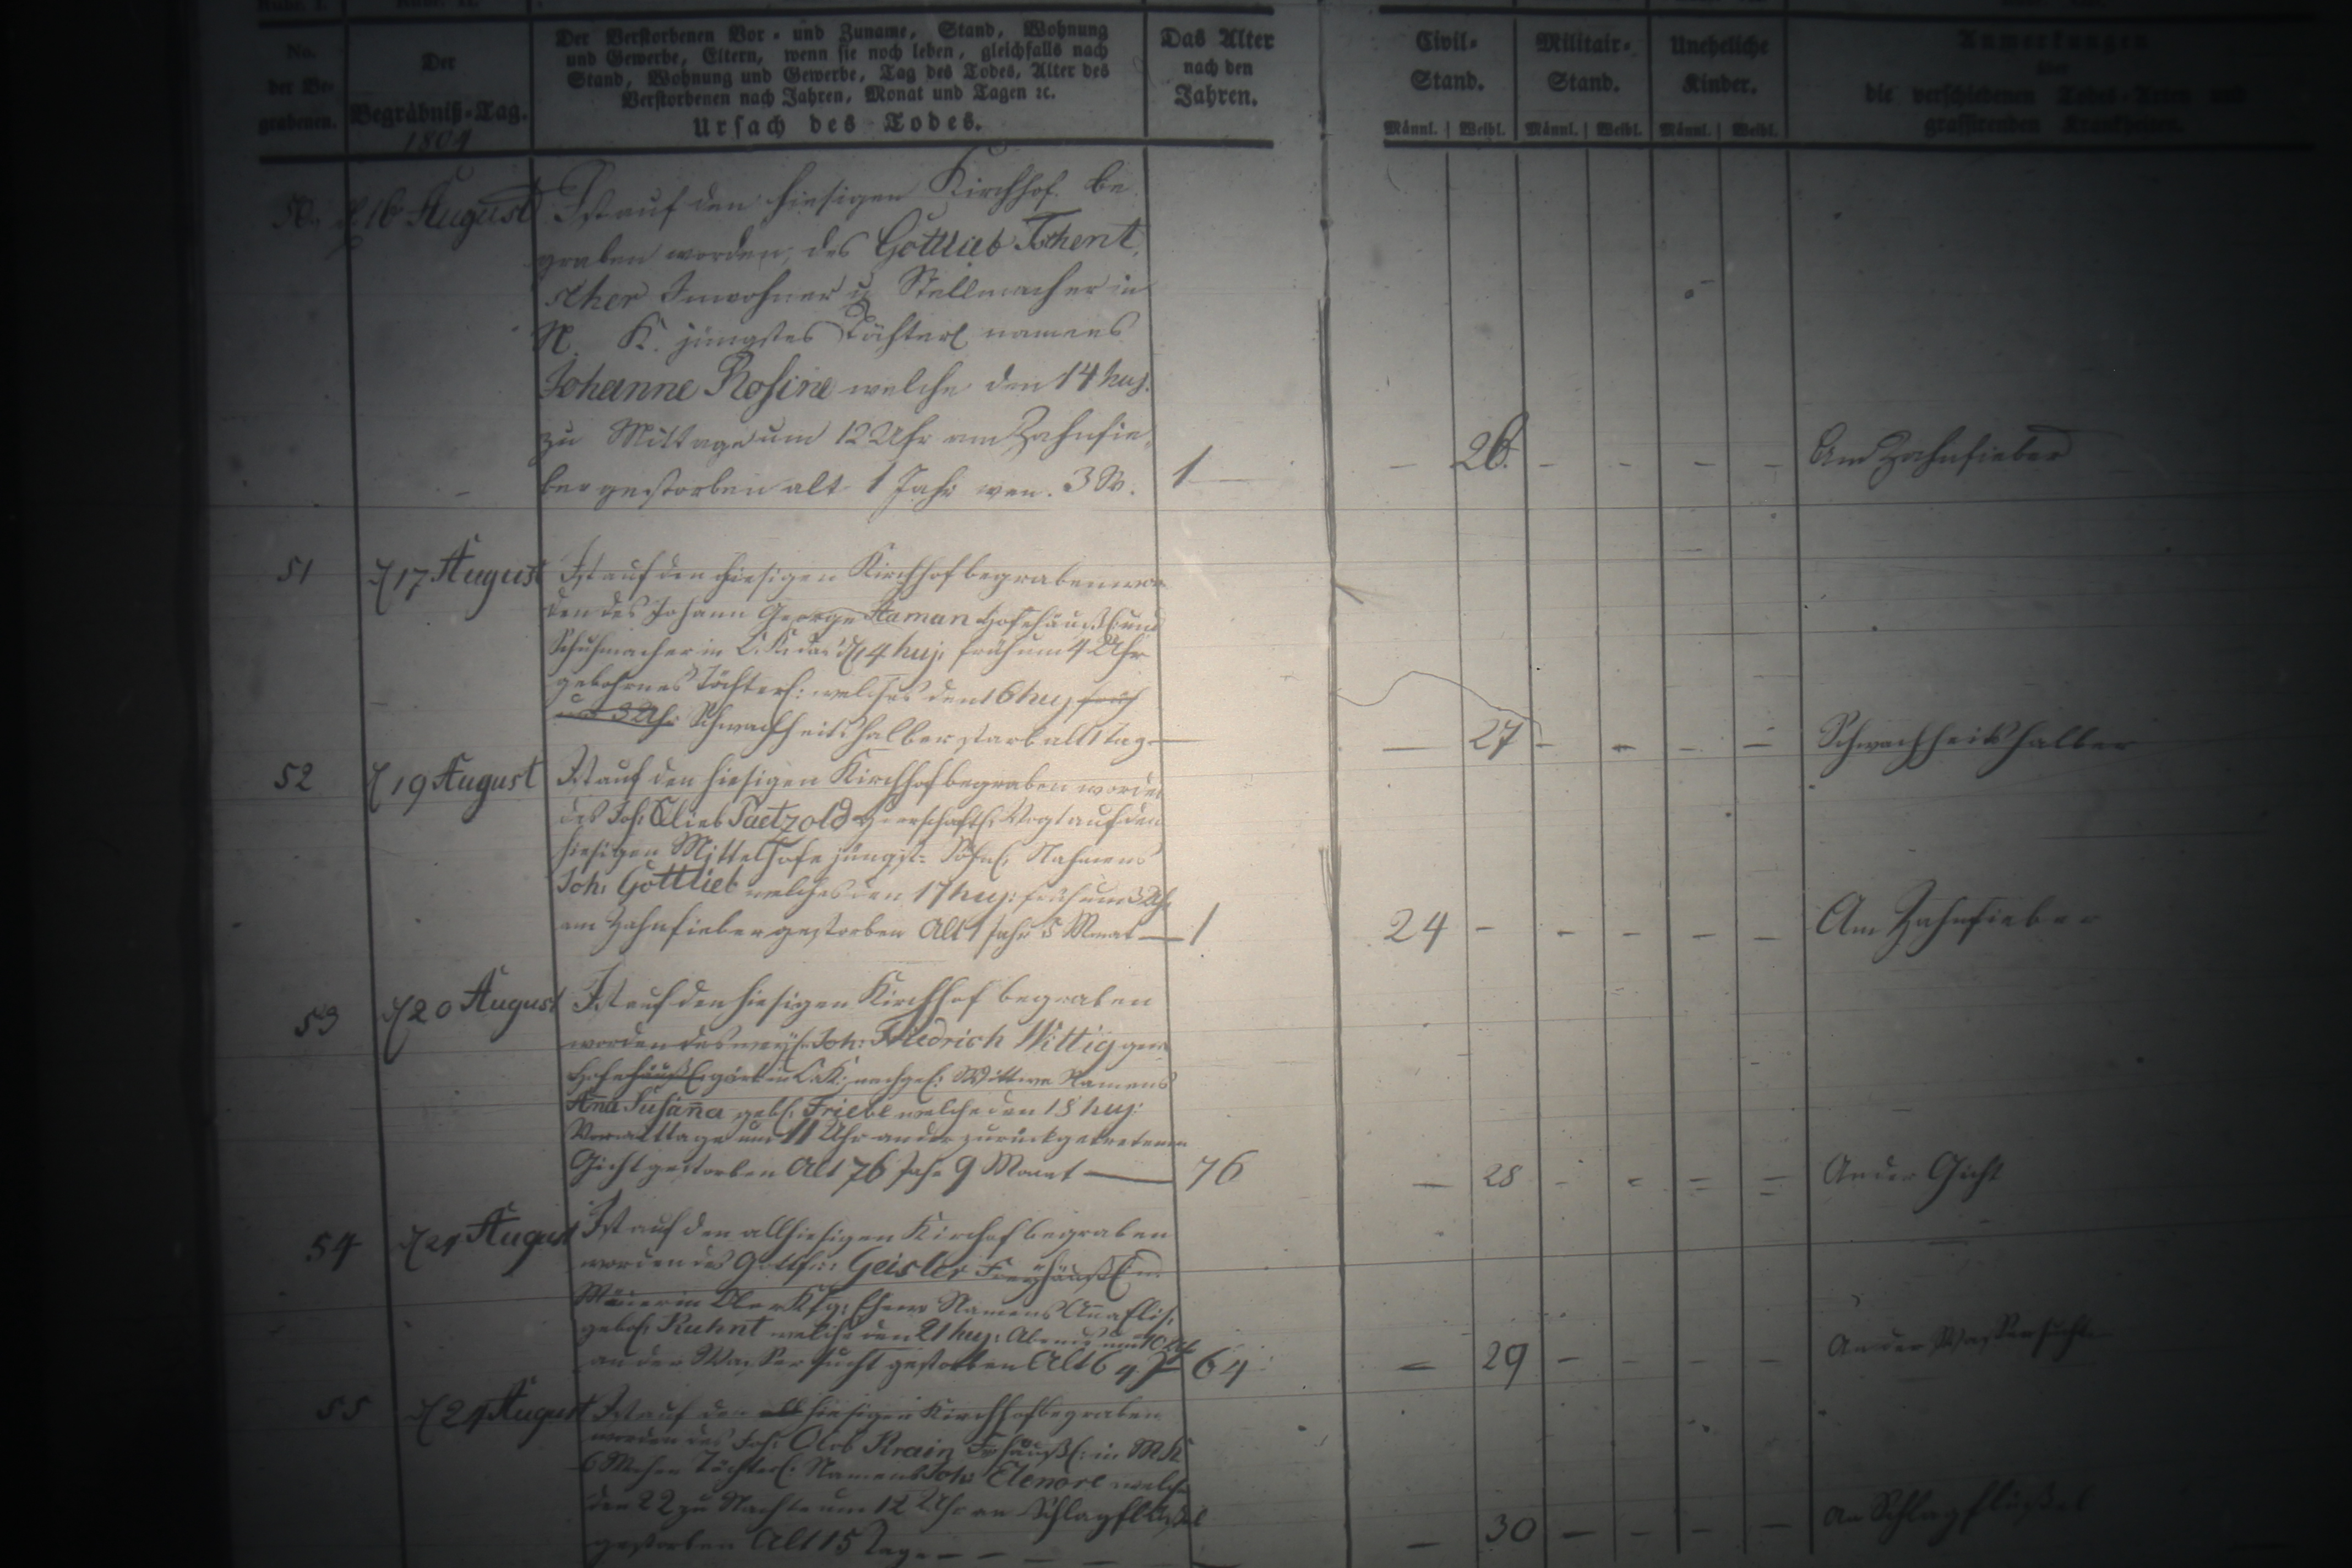 No. der Begrabenen.
Der Begräbniß-Tag.
1804
Der Verstorbenen Vor- und Zuname, Stand, Wohnung
und Gewerbe, Eltern, wenn sie noch leben, gleichfalls nach
Stand, Wohnung und Gewerbe, Tag des Todes, Alter des
Verstorbenen nach Jahren, Monat und Tagen ꝛc.
Ursach des Todes.
Das Alter
nach den
Jahren.
Civil-
Stand.
Militair-
Stand.
Uneheliche
Kinder.
Anmerkungen
über
die verschiedenen Todes-Arten und
grassirenden Krankheiten.
Männl. Weibl. Männl. Weibl. Männl. Weibl.
16 August Ist auf den hiesigen Kirchhof be
graben worden, des Gottlieb Tschent
scher Inwohner u Stellmacher in
N. K. jüngstes Töchterl namens
Johanne Rosine welche den 14 huj.
zu Mittage um 12 Uhr am Zahnfie
ber gestorben alt 1 Jahr wen. 3 W. 1 — 26. - - - - Am Zahnfieber
51 d 17 August Ist auf den hiesigen Kirchhof begraben wor
den des Johann George Haman Hofehäußl: und
Schuhmacher in das d 14 huj: früh um 4 Uhr
gebohrnes Töchterl: welches den 16 huj früh
um 3 Uhr Schwachheits halber starb alt 1 Tag — — 27 - - - - Schwachheits halber
52 d 19 August Ist auf den hiesigen Kirchhof begraben worden
des Joh: Paetzold Vogt auf den
hiesigen Mittelhofe jüngst: Söhnl: Nahmens
Joh: Gottlieb welches den 17 huj: früh um 3 Uhr
am Zahnfieber gestorben Alt 1 Jahr 5 Monat — 1 24 - - - - - Am Zahnfieber
53 d 20 August Ist auf den hiesigen Kirchhof begraben
worden des weyl: Joh: Friedrich Wittig gew:
in nachgel: Wittwe Namens
Anna Susanna geb: Friebe welche den 18 huj:
Vormittage um 11 Uhr an der zurückgetretenen
Gicht gestorben Alt 76 Jahr 9 Monat — 76 — 28 - - = = An der Gicht
54 d 24 August Ist auf den allhiesigen Kirchhof begraben
worden des Gottfr: Geisler Freyhäußl: u
Namens Anna Elis:
geboh: Kuhnt welche den 21 huj: Abends um 10 Uhr
an der Wassersucht gestorben Alt 64 J 64 = 29 - - - - An der Wassersucht
55 d 24 August Ist auf den all hiesigen Kirchhof begraben
worden des Joh: Krain in
Töchterl: Namens Joh: Elenore welche
den 22 zu Nachts um 12 Uhr an Schlagflußes
gestorben Alt 15 Tage — — — 30 - - - - An Schlagflußes